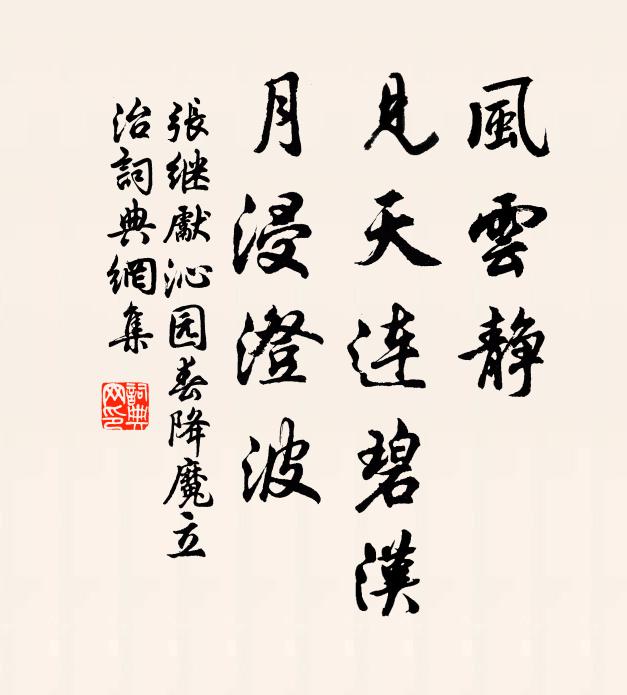 風雲靜
見天连碧漢
月浸澄波
張继獻沁园春降魔立
治詞典網集
詞典
网印